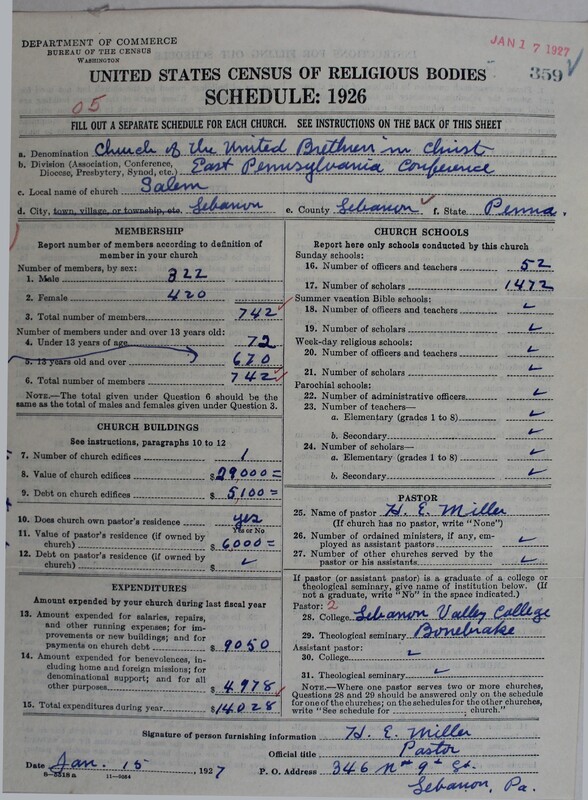 DEPARTMENT OF COMMERCE
BUREAU OF THE CENSUS
WASHINGTON
JAN 17 1927
359
UNITED STATES CENSUS OF RELIGIOUS BODIES
SCHEDULE: 1926
05
FILL OUT A SEPARATE SCHEDULE FOR EACH CHURCH. SEE INSTRUCTIONS ON THE BACK OF THIS SHEET
a. Denomination Church of the United Brethren in Christ
b. Division (Association, Conference, Diocese, Presbytery, Synod, etc.) East Pennsylvania Conference
c. Local name of church Salem
d. City, town, village, or township, etc. Lebanon e. County Lebanon f. State Penna.
MEMBERSHIP
Report number of members according to definition of
member in your church
Number of members, by sex:
1. Male 322
2. Female 420
3. Total number of members 742
Number of members under and over 13 years old:
4. Under 13 years of age 72
5. 13 years old and over 670
6. Total number of members 742
NOTE.—The total given under Question 6 should be
same as the total of males and females given under Question 3.
CHURCH BUILDINGS
See instructions, paragraphs 10 to 12
7. Number of church edifices 1
8. Value of church edifices $29000=
9. Debt on church edifices $5100=
10. Does church own pastor's residence yes
Yes or No
11. Value of pastor's residence (if owned by
church) $6000=
12. Debt on pastor's residence (if owned by
church) $
EXPENDITURES
Amount expended by your church during last fiscal year
13. Amount expended for salaries, repairs,
and other running expenses; for im-
provements or new buildings; and for
payments on church debt $9050
14. Amount expended for benevolences, in-
cluding home and foreign missions; for
denominational support; and for all
other purposes $4978
15. Total expenditures during year $14028
CHURCH SCHOOLS
Report here only schools conducted by this church
Sunday schools:
16. Number of officers and teachers 52
17. Number of scholars 1472
Summer vacation Bible schools:
18. Number of officers and teachers
19. Number of scholars
Week-day religious schools:
20. Number of officers and teachers
21. Number of scholars
Parochial schools:
22. Number of administrative officers
23. Number of teachers—
a. Elementary (grades 1 to 8)
b. Secondary
24. Number of scholars—
a. Elementary (grades 1 to 8)
b. Secondary
PASTOR
25. Name of pastor H. E. Miller
(If church has no pastor, write "None")
26. Number of ordained ministers, if any, em-
ployed as assistant pastors
27. Number of other churches served by the
pastor or his assistants
If pastor (or assistant pastor) is a graduate of a college or
theological seminary, give name of institution below. (If
not a graduate, write "No" in the space indicated.)
Pastor: 2
28. College Lebanon Valley College
29. Theological seminary Bonebrake
Assistant pastor:
30. College
31. Theological seminary
NOTE.—Where one pastor serves two or more churches,
Questions 28 and 29 should be answered only on the schedule
for one of the churches; on the schedules for the other churches,
write "See schedule for church."
Signature of person furnishing information H. E. Miller
Official title Pastor
Date Jan. 15, 1927 P. O. Address 346 N 9th St.
Lebanon, Pa.